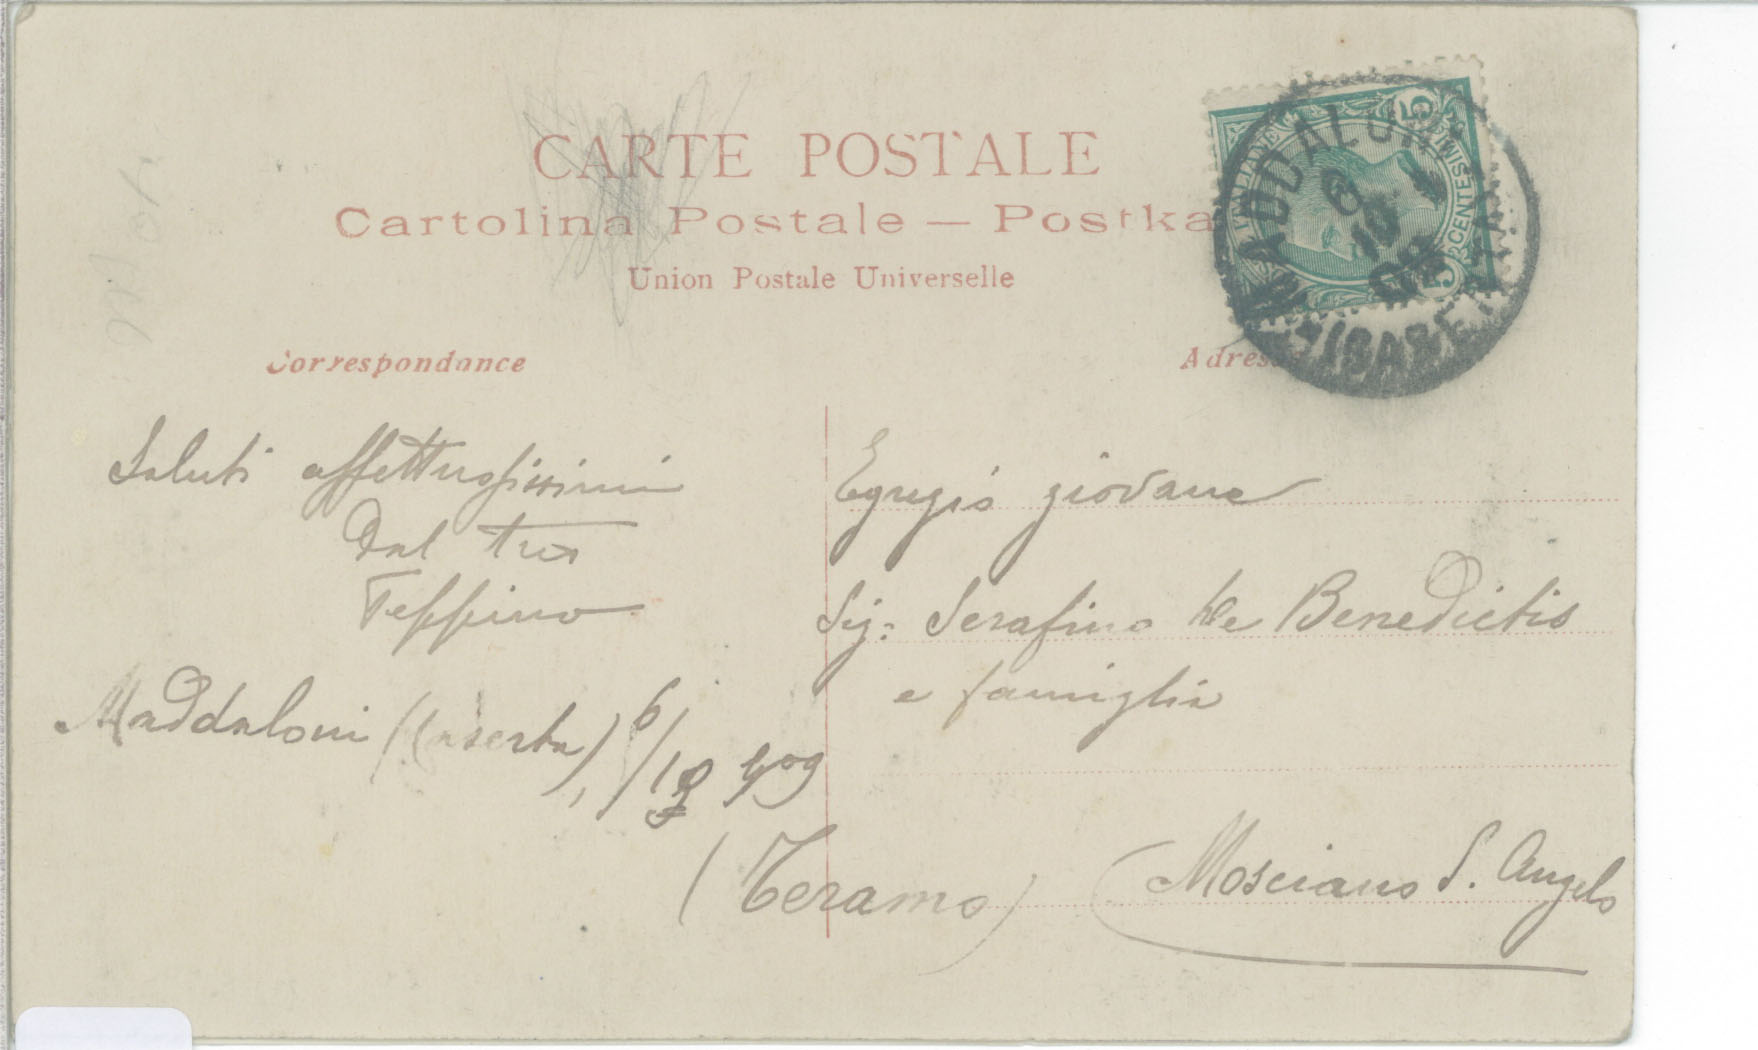 CARTE POSTALE
Cartolina Postale — Postka
Union Postale Universelle
Correspondance
Adress
MADDALONI
6 1
10
09
CASERTA
5 CENTESIMI 5
Saluti affettuosissimi
Dal tuo
Peppino
Maddaloni (Caserta), 6/10 909
Egregio giovane
Sig: Serafino De Benedictis
e famiglia
Mosciano S. Angelo
(Teramo)